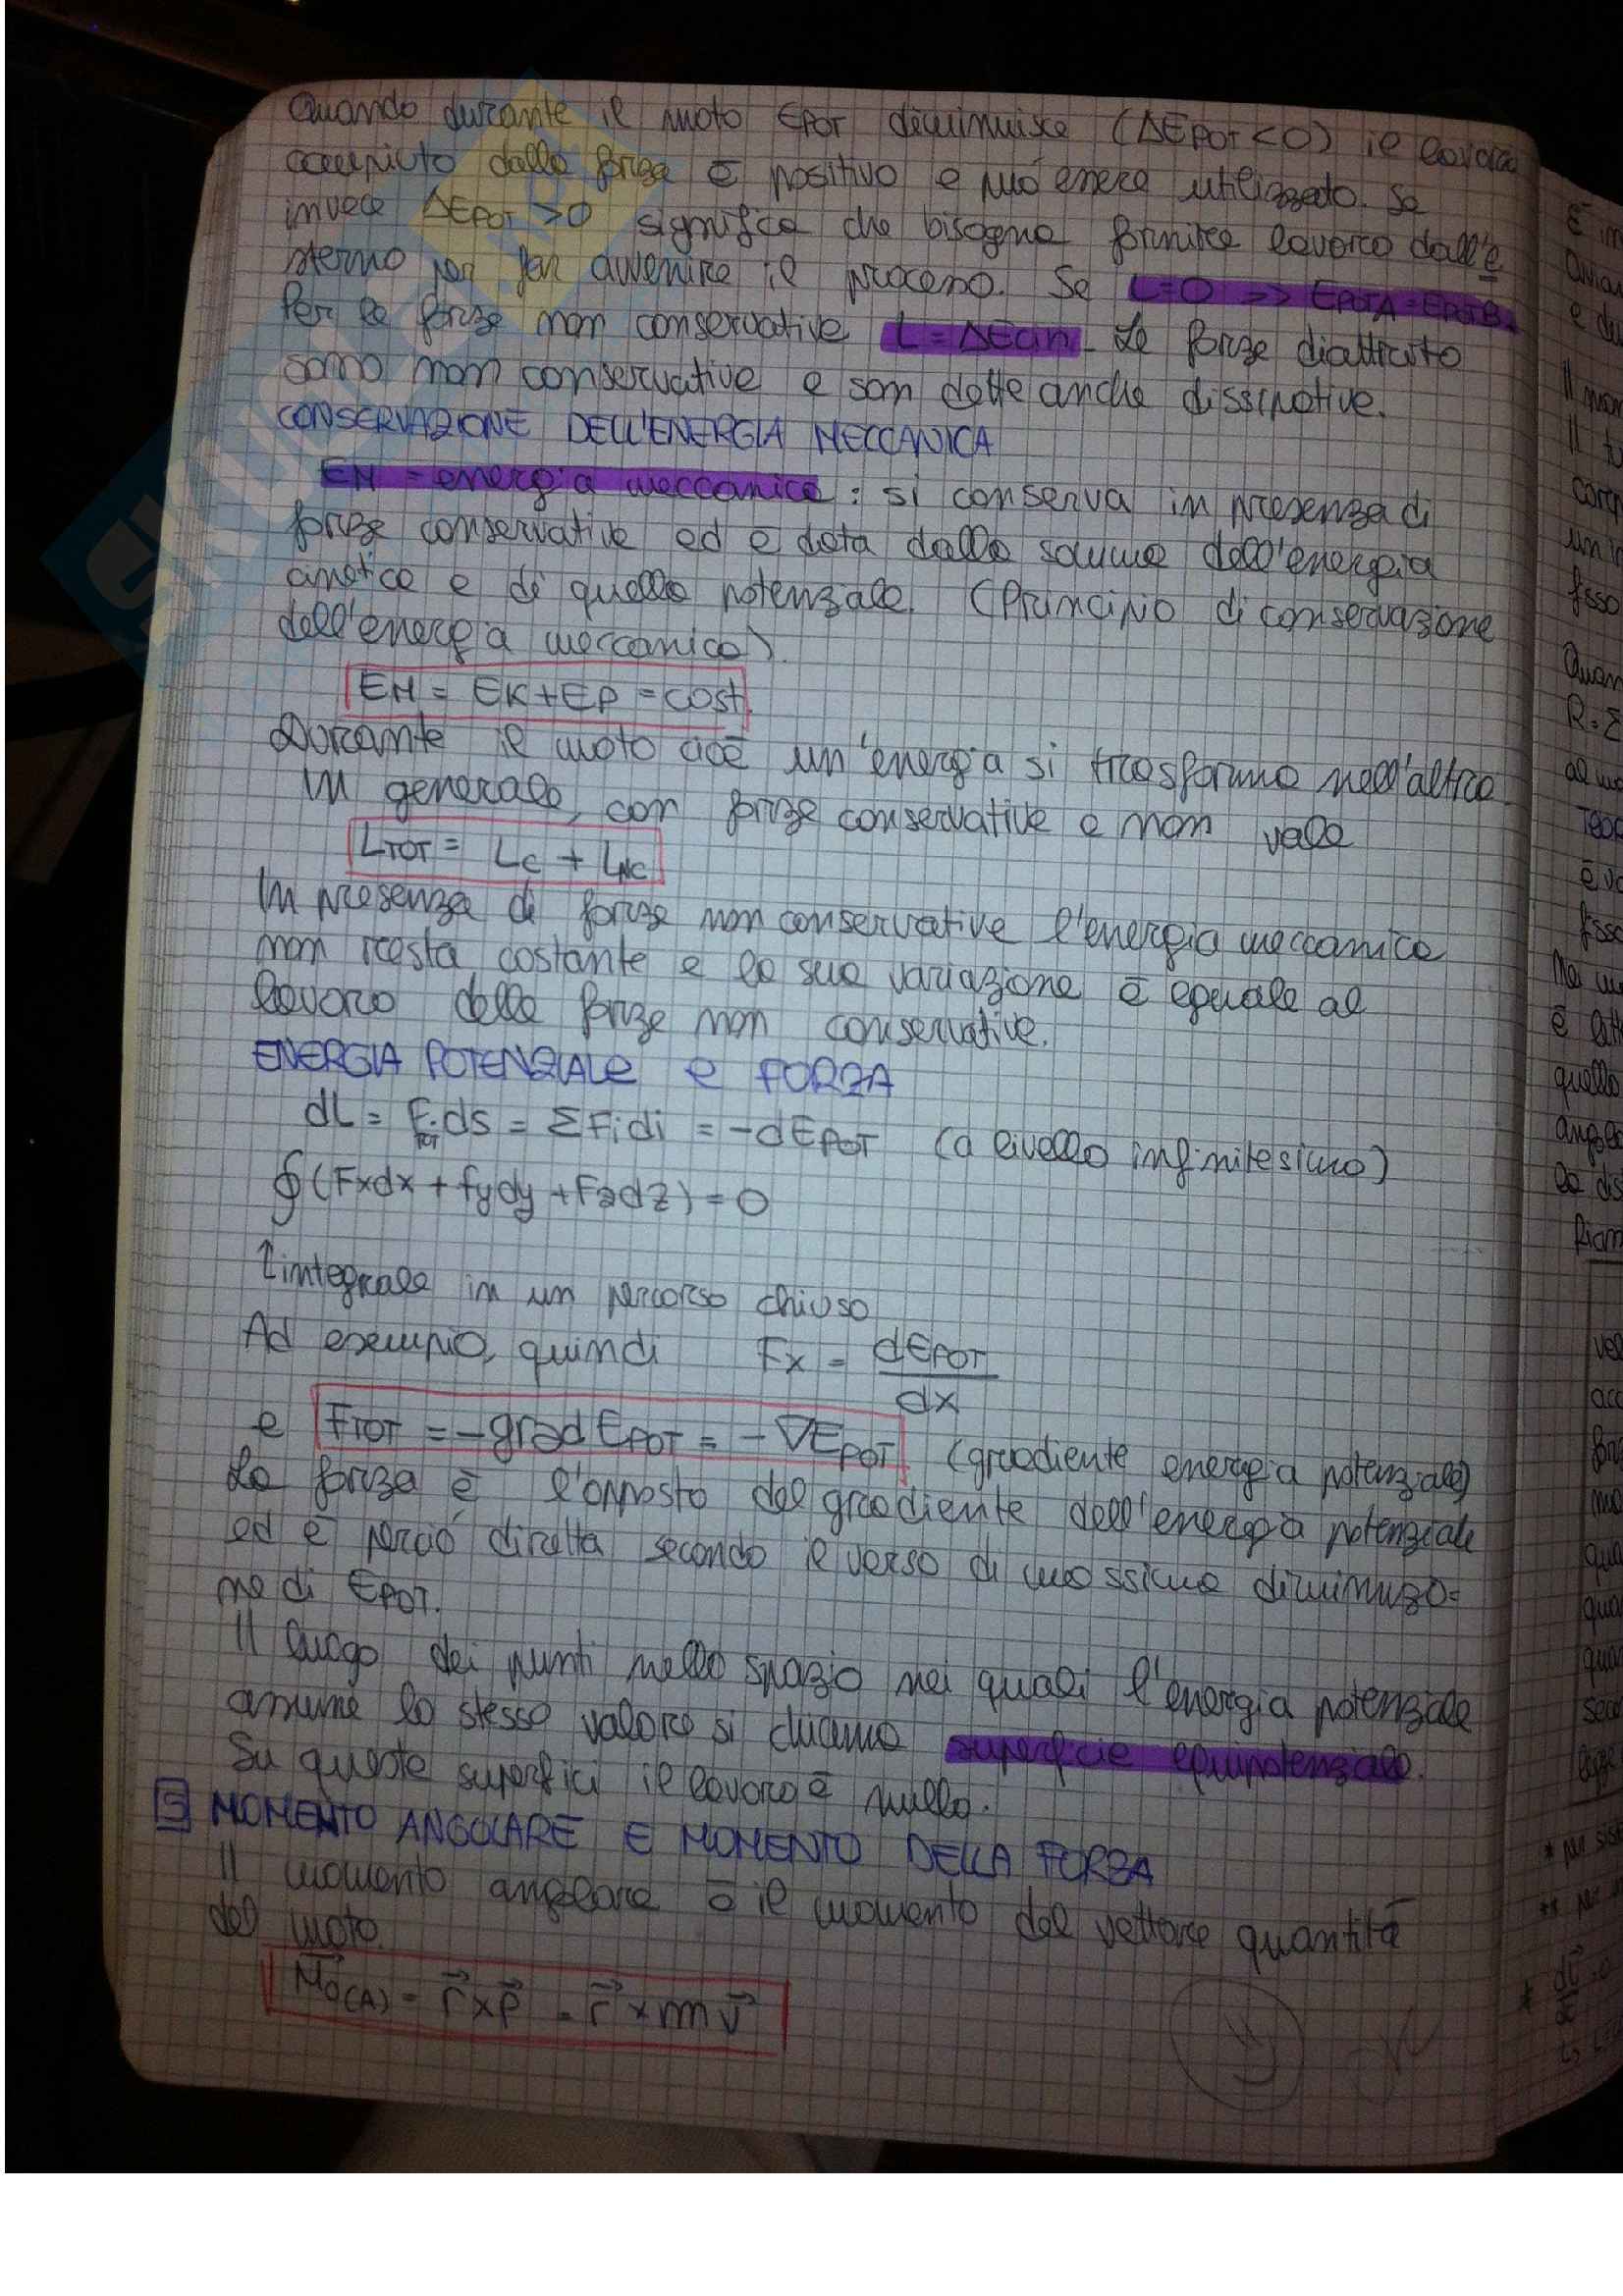 Quando durante il moto EPOT diminuisce (ΔEPOT<0) il lavoro
compiuto dalla forza è positivo e può essere utilizzato. Se
invece ΔEPOT>0 significa che bisogna fornire lavoro dall'e
sterno per far avvenire il processo. Se L=0 => EPOTA=EPOTB.
Per le forze non conservative L=ΔEcin. Le forze di attrito
sono non conservative e son dette anche dissipative.
CONSERVAZIONE DELL'ENERGIA MECCANICA
EM = energia meccanica: si conserva in presenza di
forze conservative ed è data dalla somma dell'energia
cinetica e di quella potenziale. (Principio di conservazione
dell'energia meccanica).
EM = EK+EP = cost.
Durante il moto cioè un'energia si trasforma nell'altra
In generale, con forze conservative e non vale
LTOT = LC + LNC
In presenza di forze non conservative l'energia meccanica
non resta costante e la sua variazione è eguale al
lavoro delle forze non conservative.
ENERGIA POTENZIALE E FORZA
dL = FTOT·ds = ΣFidi = -dEPOT (a livello infinitesimo)
∮(Fxdx + Fydy + Fzdz) = 0
↑integrale in un percorso chiuso
Ad esempio, quindi Fx = dEPOT/dx
e FTOT = -grad EPOT = -∇EPOT. (gradiente energia potenziale)
La forza è l'opposto del gradiente dell'energia potenziale
ed è perciò diretta secondo il verso di massima diminuzio=
ne di EPOT.
Il luogo dei punti nello spazio nei quali l'energia potenziale
assume lo stesso valore si chiama superficie equipotenziale.
Su queste superfici il lavoro è nullo.
5 MOMENTO ANGOLARE E MOMENTO DELLA FORZA
Il momento angolare è il momento del vettore quantità
del moto.
M⃗O(A) = r⃗ × p⃗ = r⃗ × mv⃗